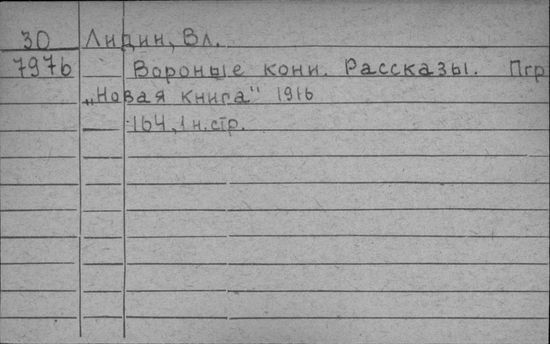 30 Лидин, Вл.
7976 Вороные кони. Рассказы. Пгр
„Новая книга" 1916
164, 1 н. стр.